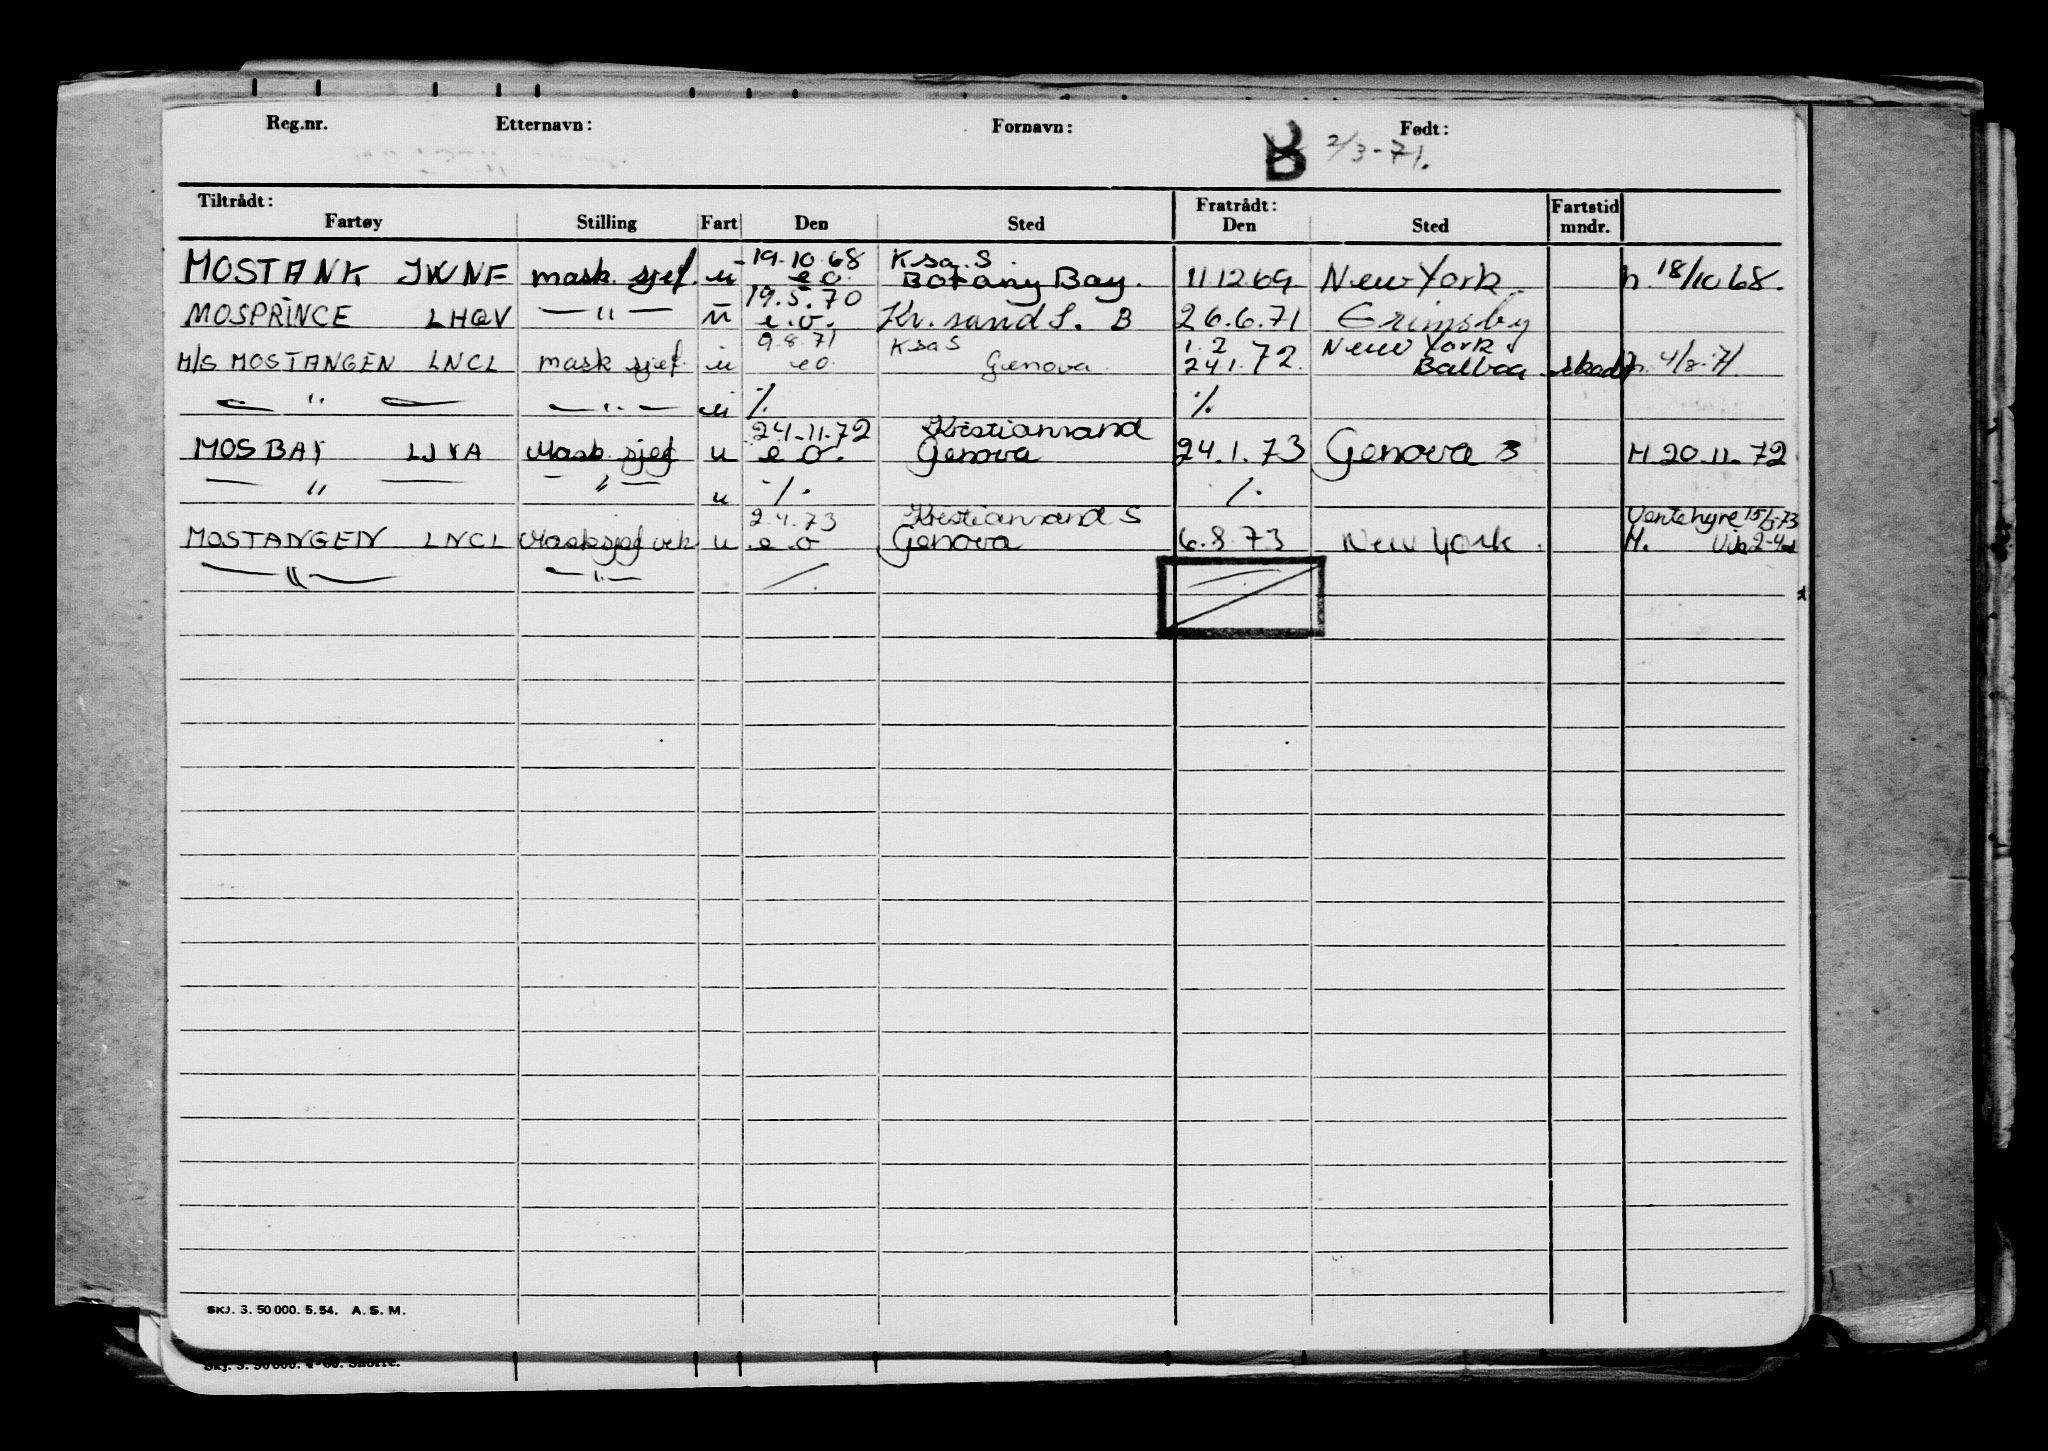 Reg.nr. Etternavn: Fornavn: Født:
B 2/3-71.
Tiltrådt: Fratrådt: Fartstid
Fartøy Stilling Fart Den Sted Den Sted mndr.
19.10.68 Ksa. S.
MOSTANK JWNF mask. sjef. u e o. Botany Bay. 11.12.69. New York h. 18/10 68.
19.5.70
MOSPRINCE LHQV — " — u e.o. Kr. sand S. B 26.6.71 Grimsby
9.8.71 Ksa S 1.2 New York
M/S MOSTANGEN LNCL mask sjef u e o Genova 24.1.72. Balboa skadet h. 4/8.71.
— " — — " — u % %
24.11.72 Kristiansand
MOSBAY LJYA Mask sjef u e o. Genova 24.1.73 Genova B H 20.11.72
— " — — " — u % %
2.4.73 Kristiansand S Ventehyre 15/3-73
MOSTANGEN LNCL Masksjef vik u e o Genova 6.8.73 New York. H. 2-4
— " — — " —
SKJ. 3. 50 000. 5. 54. A. S. M.
Skj. 3. 50 000. 4 - 60. Snorre.